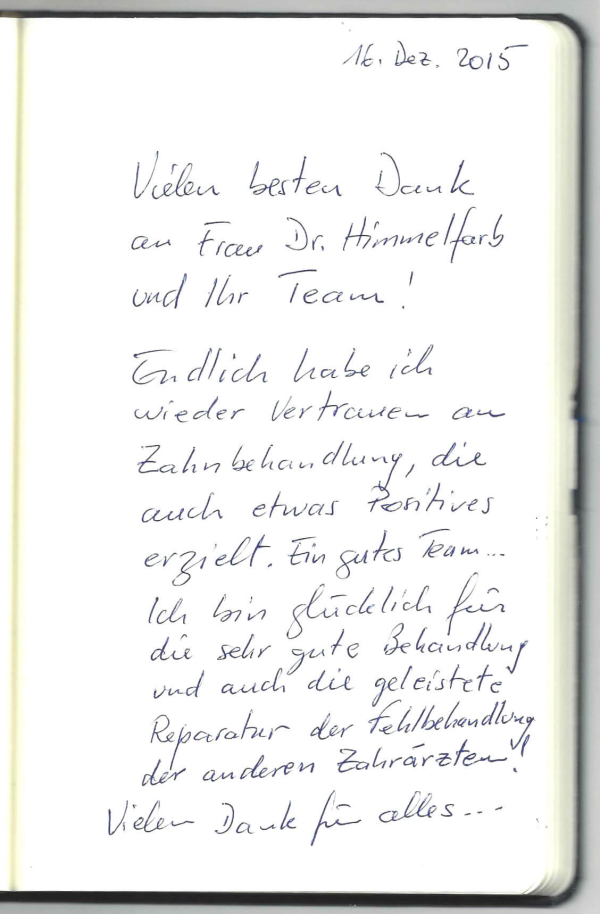 16. Dez. 2015
Vielen besten Dank
an Frau Dr. Himmelfarb
und Ihr Team!
Endlich habe ich
wieder Vertrauen an
Zahnbehandlung, die
auch etwas Positives
erzielt. Ein gutes Team...
Ich bin glücklich für
die sehr gute Behandlung
und auch die geleistete
Reparatur der Fehlbehandlung
der anderen Zahnärzten!
Vielen Dank für alles...